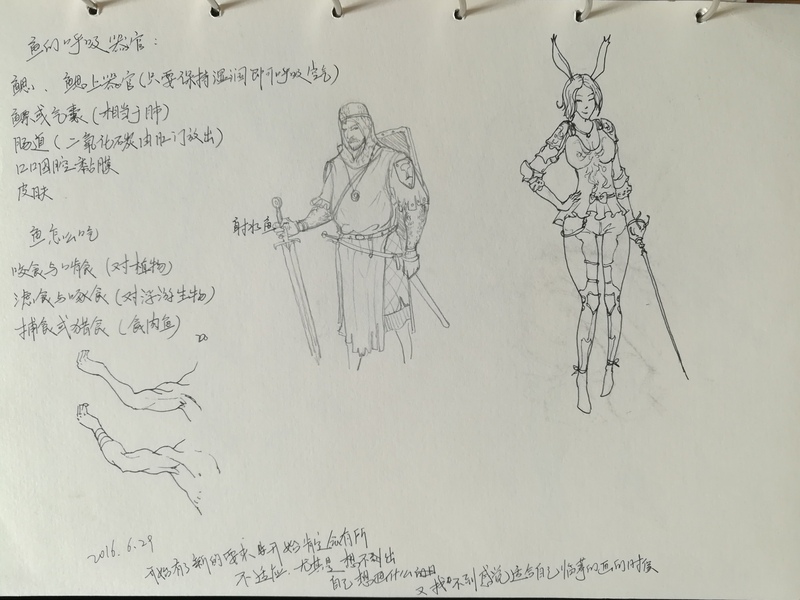 鱼的呼吸器官:
鱼鳃、鳃上器官(只要保持湿润即可呼吸空气)
鳔或气囊(相当于肺)
肠道(二氧化碳由肛门放出)
口咽腔黏膜
皮肤
射水鱼
鱼怎么吃
咬食与啃食(对植物)
滤食与啄食(对浮游生物)
捕食或猎食(食肉鱼)
2016.6.29
开始有了新的要求 刚开始肯定会有所
不适应,尤其是想不到出
自己想画什么的
又找不到感觉适合自己临摹的画的时候